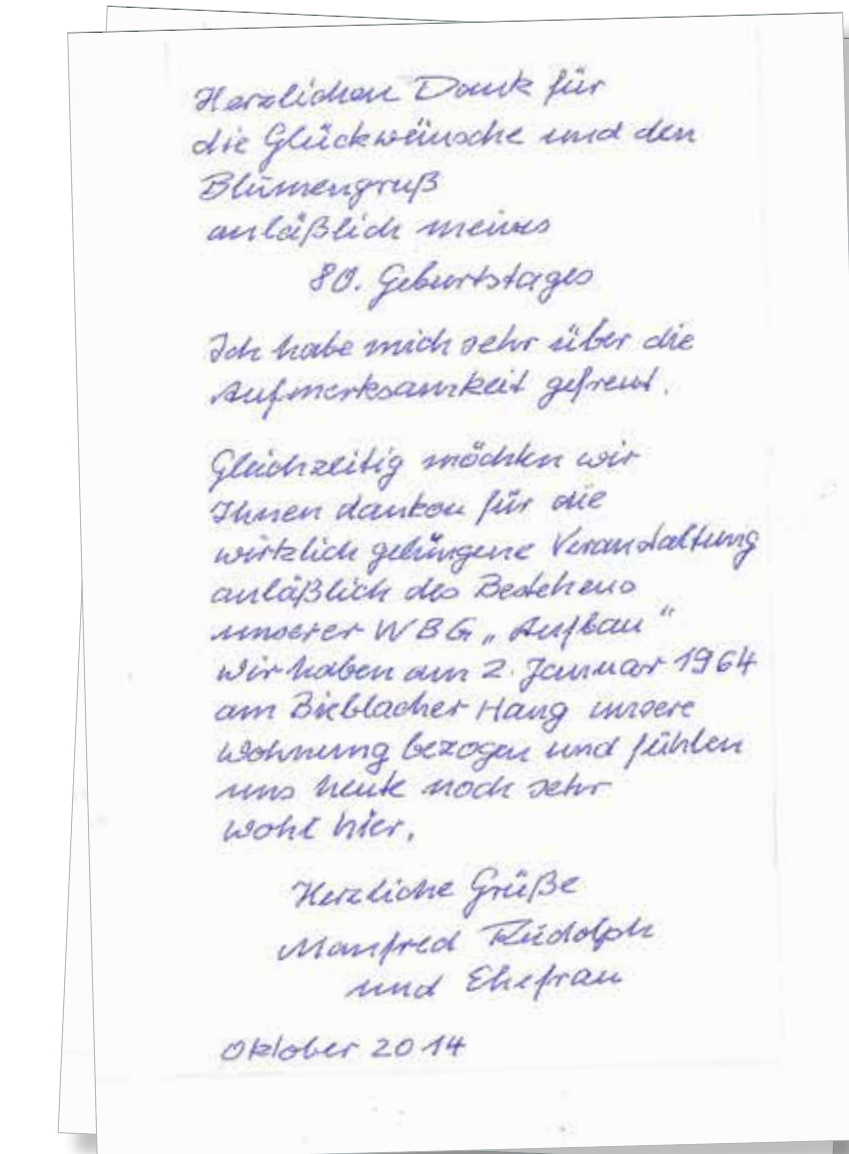 Herzlichen Dank für
die Glückwünsche und den
Blumengruß
anläßlich meines
80. Geburtstages
Ich habe mich sehr über die
Aufmerksamkeit gefreut.
Gleichzeitig möchten wir
Ihnen danken für die
wirklich gelungene Veranstaltung
anläßlich des Bestehens
unserer WBG „Aufbau"
Wir haben am 2. Januar 1964
am Bieblacher Hang unsere
Wohnung bezogen und fühlen
uns heute noch sehr
wohl hier.
Herzliche Grüße
Manfred Rudolph
und Ehefrau
Oktober 2014